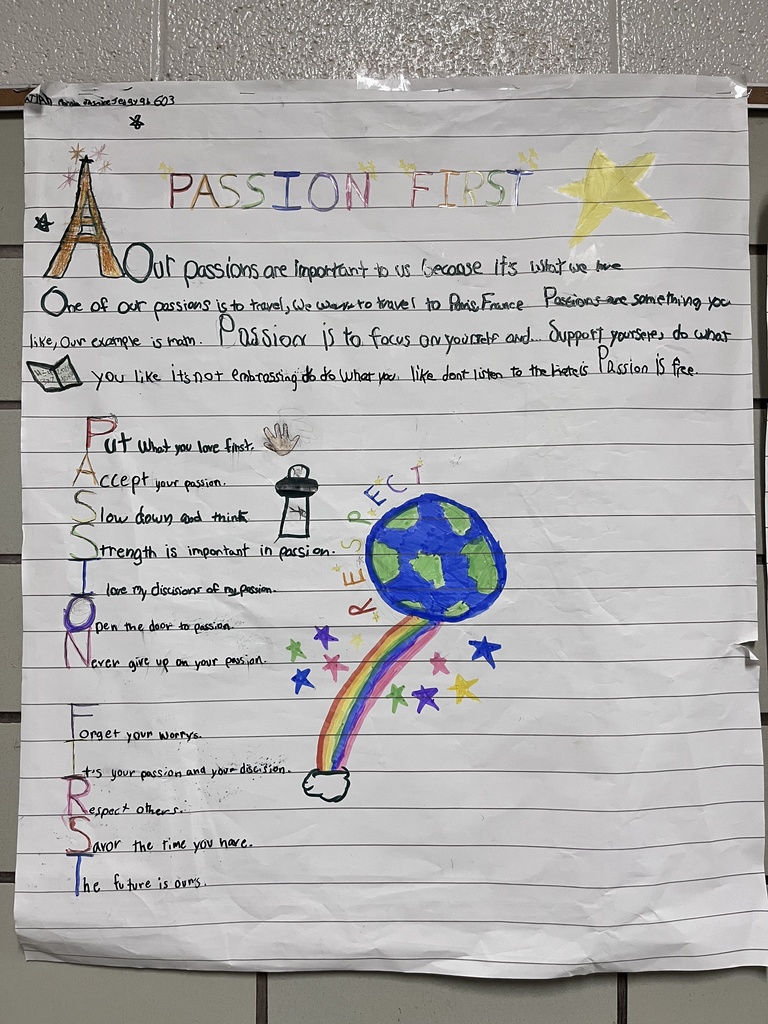 603
PASSION FIRST
Our passions are important to us because it's what we love
One of our passions is to travel, we want to travel to Paris, France Passions are something you
like, Our example is math. Passion is to focus on yourself and... Support yourselves, do what
you like it's not embrassing to do what you like dont listen to the Passion is free.
Put what you love first.
Accept your passion.
Slow down and think
Strength is important in passion.
I love my discisions of my passion.
Open the door to passion.
Never give up on your passion.
RESPECT
Forget your worrys.
It's your passion and your discision.
Respect others.
Savor the time you have.
The future is ours.